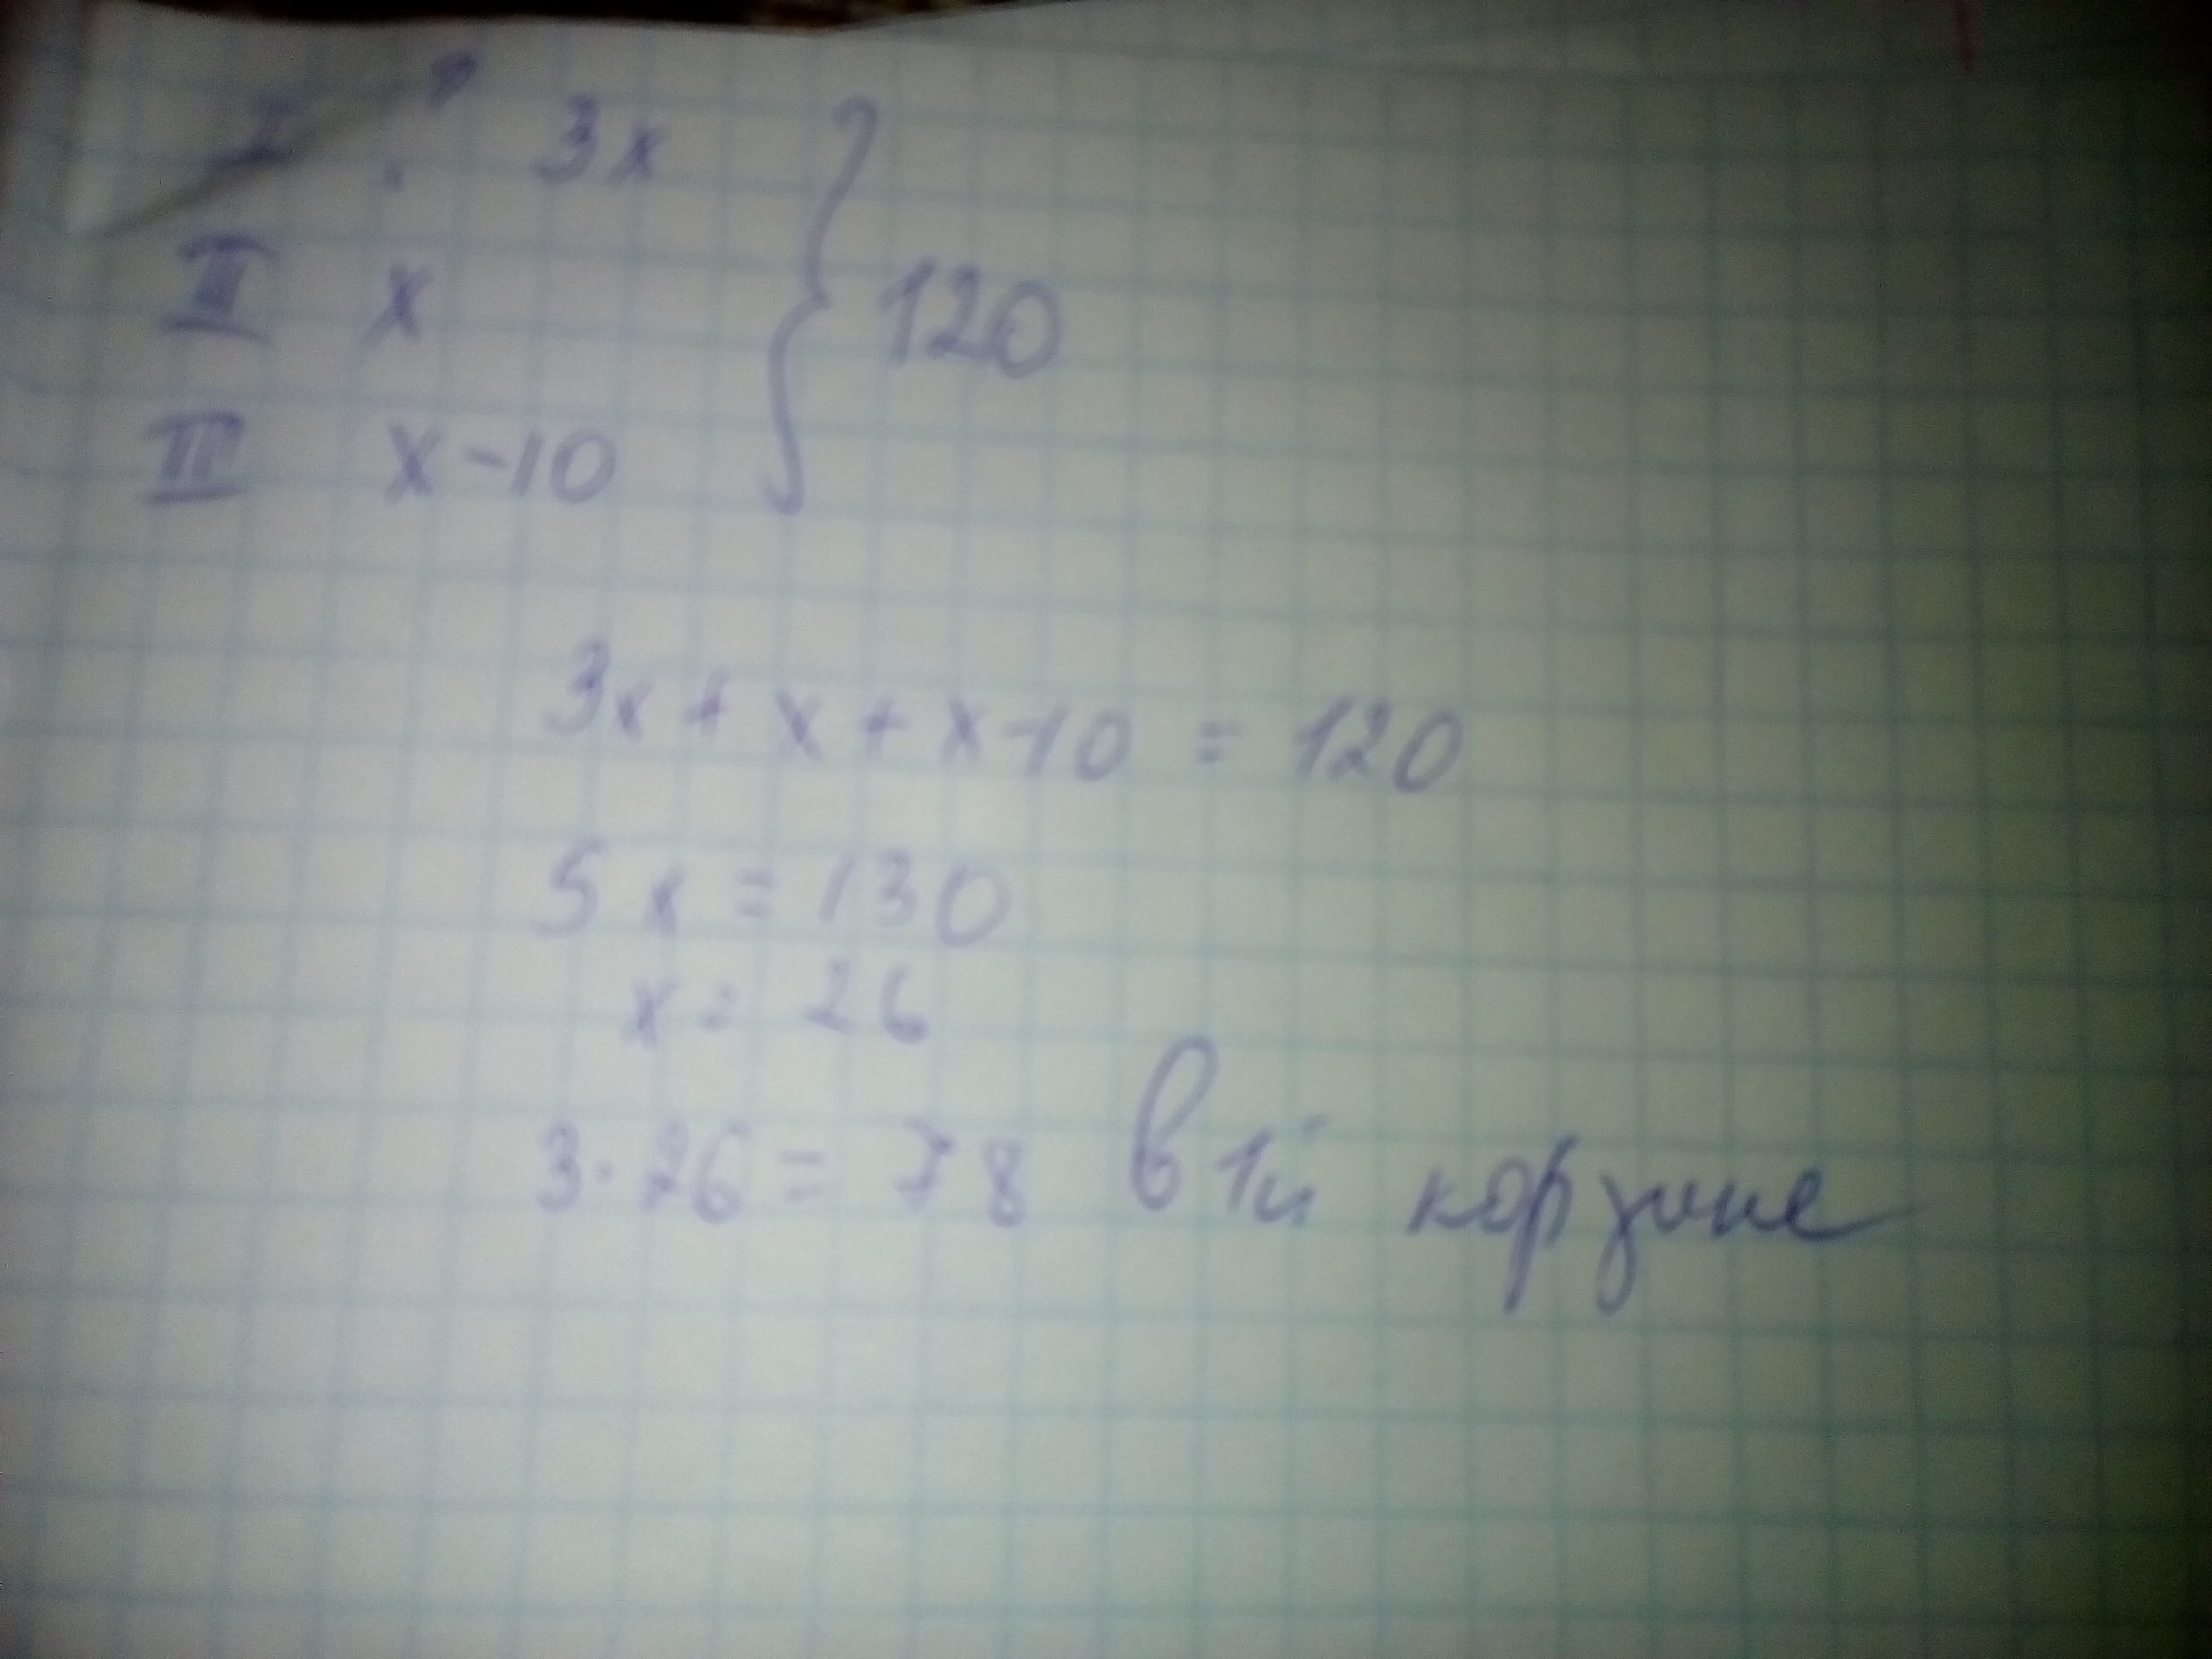 I . 3x
II x } 120
III x-10
3x + x + x-10 = 120
5x = 130
x = 26
3·26 = 78 в 1й корзине